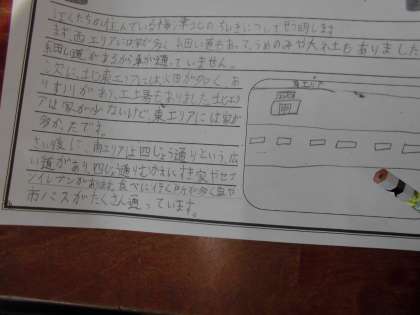 ぼくたちが住んでいる梅津
について説明します
まず、西エリアは家が多く、細い道もあって、うめのみや大社もありました
細い道があるから車が通っていません。
次に、北東エリアには火田が多く、あ
り すい川があり、工場もありました。北エリ
アは家が少ないけど、東エリアには家が
多かったです。
さい後に、南エリアは四じょう通りという、広
い道があり 四じょう通り
家やセブ
ンイレブンがあります。食べに行く所が多く車や
市バスがたくさん通っています。
東エリア